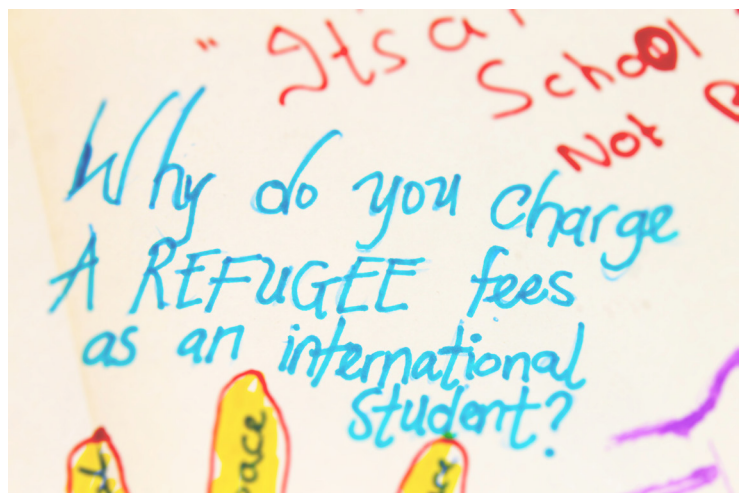 " It's a
School
Not
Why do you charge
A REFUGEE fees
as an international
student?